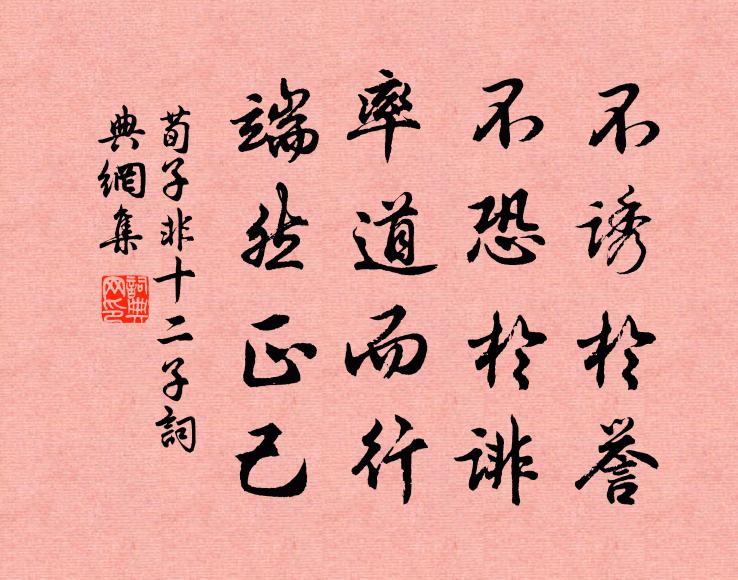 不誘於譽
不恐於誹
率道而行
端然正己
荀子非十二子詞
典網集
詞典
网印